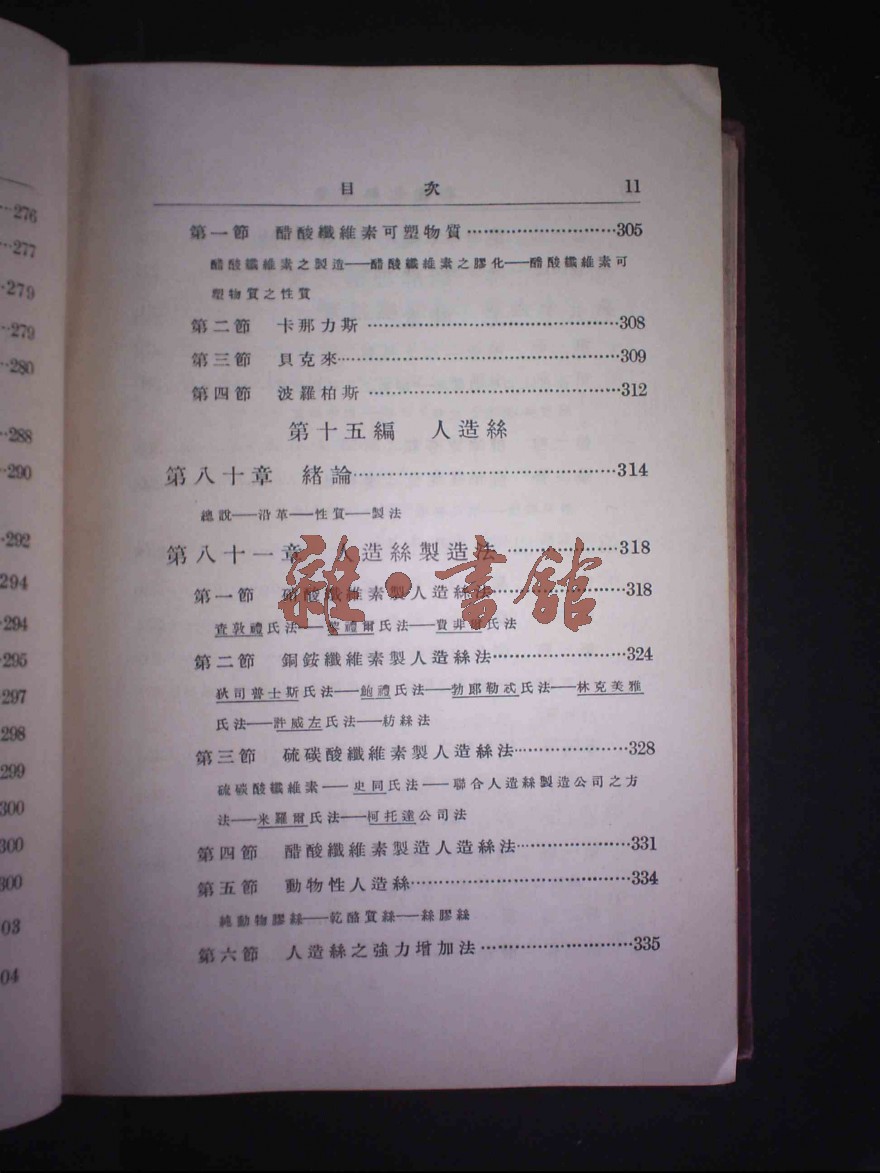 目 次 11
第一節 醋酸纖維素可塑物質…………305
醋酸纖維素之製造——醋酸纖維素之膠化——醋酸纖維素可
塑物質之性質
第二節 卡那力斯…………308
第三節 貝克來…………309
第四節 波羅柏斯…………312
第十五編 人造絲
第八十章 緒論…………314
總說——沿革——性質——製法
第八十一章 人造絲製造法…………318
第一節 硝酸纖維素製人造絲法…………318
查敦禮氏法——禮爾氏法——費非爾氏法
第二節 銅銨纖維素製人造絲法…………324
狄司普士斯氏法——鮑禮氏法——勃郎勒忒氏法——林克美雅
氏法——許威左氏法——紡絲法
第三節 硫碳酸纖維素製人造絲法…………328
硫碳酸纖維素——史同氏法——聯合人造絲製造公司之方
法——米羅爾氏法——柯托達公司法
第四節 醋酸纖維素製造人造絲法…………331
第五節 動物性人造絲…………334
純動物膠絲——乾酪質絲——絲膠絲
第六節 人造絲之強力增加法…………335
276
277
279
279
280
288
290
292
294
294
295
297
298
299
300
300
300
03
04
雜·書館